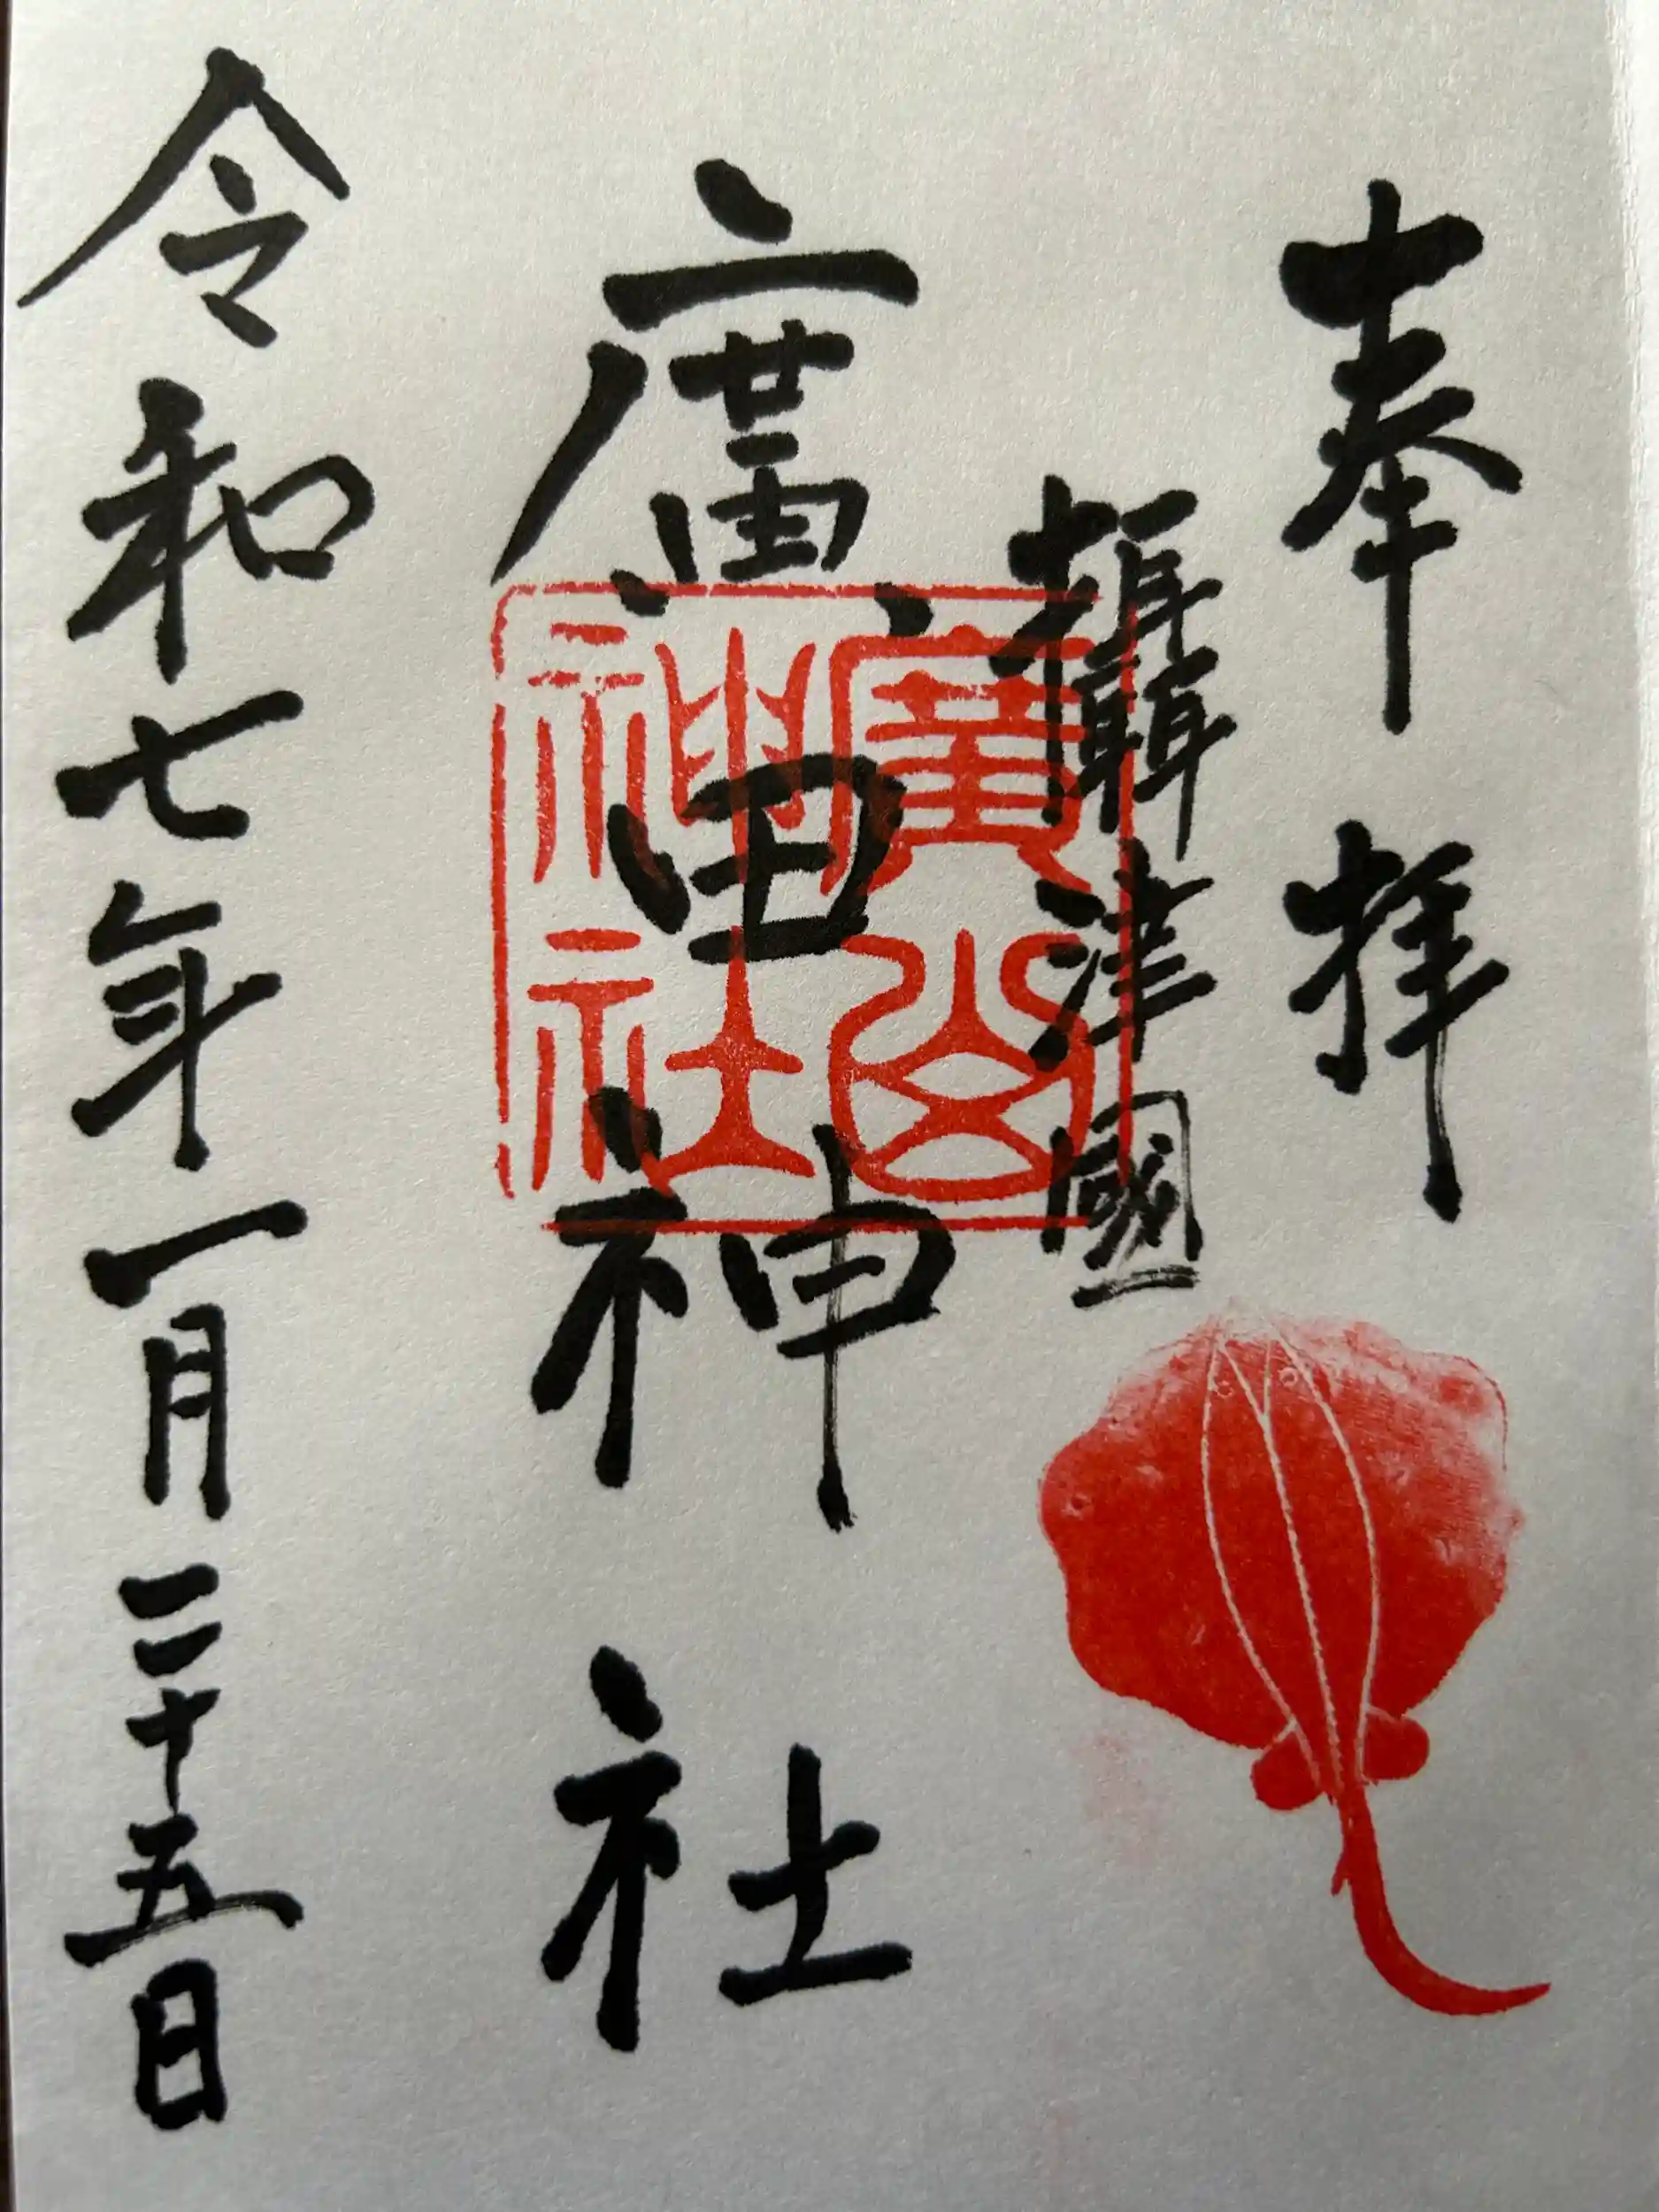 奉拝
攝津國
廣田神社
廣田
神社
令和七年一月二十五日